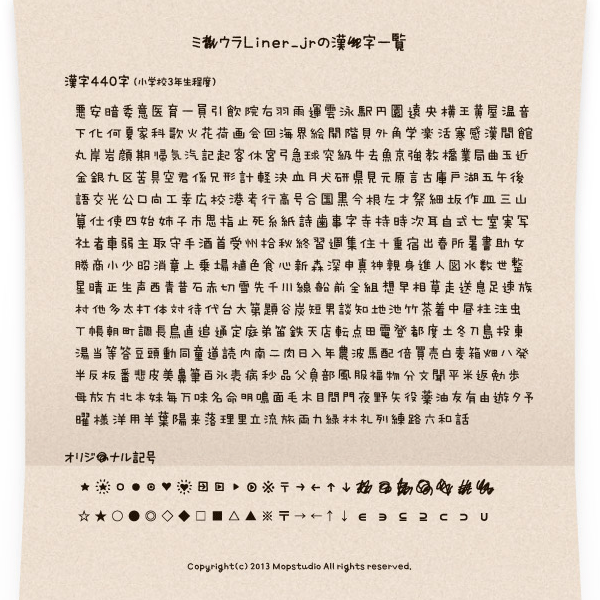 ミ ウラLiner_jrの漢 字一覧
漢字440字 (小学校3年生程度)
悪安暗委意医育一員引飲院右羽雨運雲泳駅円園遠央横王黄屋温音
下化何夏家科歌火花荷画会回海界絵開階貝外角学楽活寒感漢間館
丸岸岩顔期帰気汽記起客休宮弓急球究級牛去魚京強教橋業局曲玉近
金銀九区苦具空君係兄形計軽決血月犬研県見元原言古庫戸湖五午後
語交光公口向工幸広校港考行高号合国黒今根左才祭細坂作皿三山
算仕使四始姉子市思指止死糸紙詩歯事字寺持時次耳自式七室実写
社者車弱主取守手酒首受州拾秋終習週集住十重宿出春所暑書助女
勝商小少昭消章上乗場植色食心新森深申真神親身進人図水数世整
星晴正生声西青昔石赤切雪先千川線船前全組想早相草走送息足速族
村他多太打体対待代台大第題谷炭短男談知地池竹茶着中昼柱注虫
丁帳朝町調長鳥直追通定庭弟笛鉄天店転点田電登都度土冬刀島投東
湯当等答豆頭動同童道読内南二肉日入年農波馬配倍買売白麦箱畑八発
半反板番悲皮美鼻筆百氷表病秒品父負部風服福物分文聞平米返勉歩
母放方北本妹毎万味名命明鳴面毛木目問門夜野矢役薬油友有由遊夕予
曜様洋用羊葉陽来落理里立流旅両力緑林礼列練路六和話
オリジ ナル記号
★ ○ ● ◎ ♥ ▶ ※ 〒 → ← ↑ ↓
☆ ★ ○ ● ◎ ◇ ◆ □ ■ △ ▲ ※ 〒 → ← ↑ ↓ ∈ ∋ ⊆ ⊇ ⊂ ⊃ ∪
Copyright(c) 2013 Mopstudio All rights reserved.